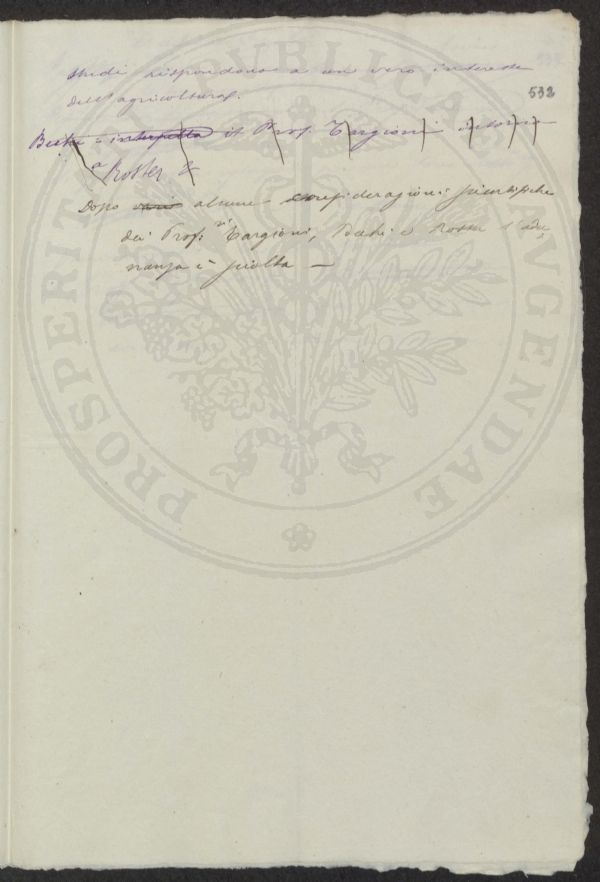 532
studi rispondono a un vero interesse
dell'agricoltura.
Bechi interpella il Prof. Targioni intorno
a Roster &
Dopo varie alcune considerazioni scientifiche
dei Prof.ri Targioni, Bechi e Roster l'adu-
nanza è sciolta —
PROSPERITATI PVBLICAE AVGENDAE